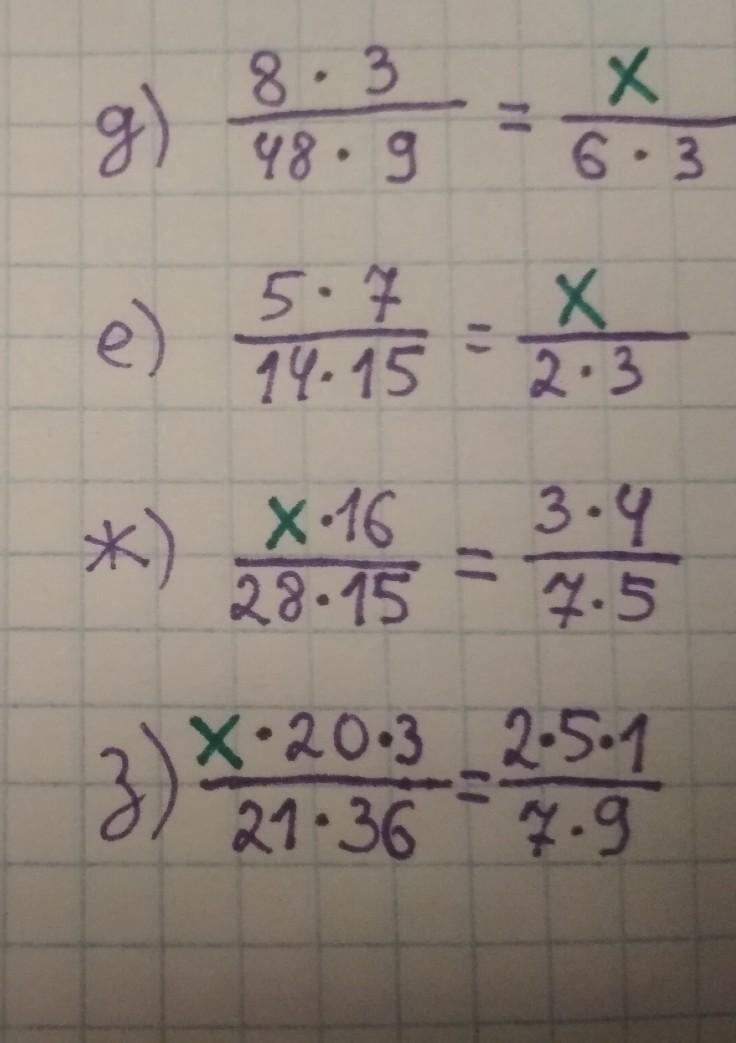 д) 8 · 3 / 48 · 9 = x / 6 · 3
е) 5 · 7 / 14 · 15 = x / 2 · 3
ж) x · 16 / 28 · 15 = 3 · 4 / 7 · 5
з) x · 20 · 3 / 21 · 36 = 2 · 5 · 1 / 7 · 9